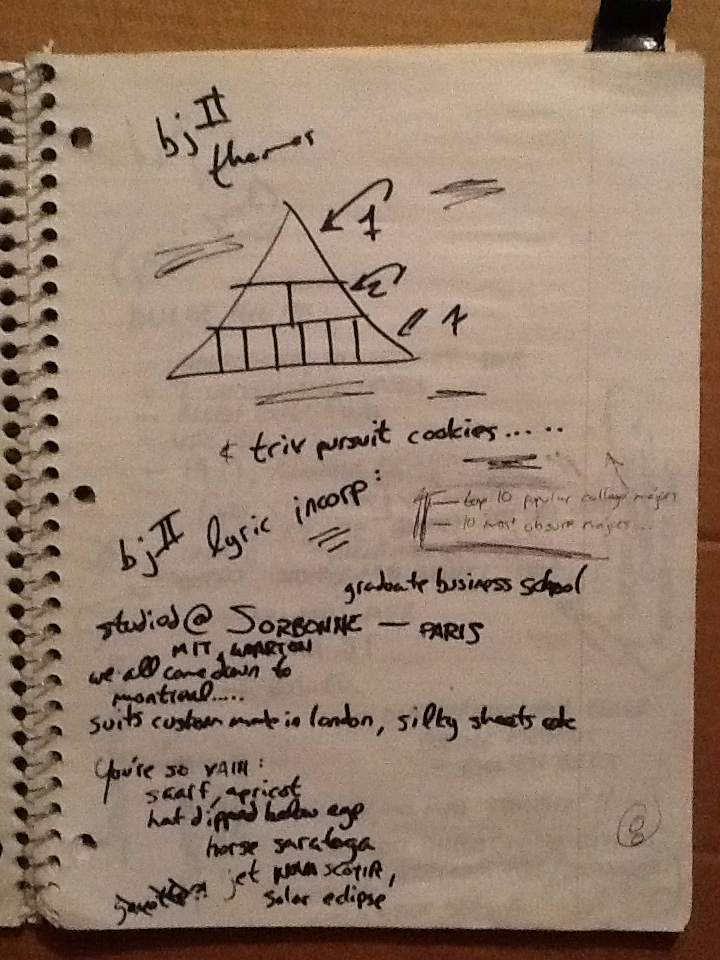 bj II
themes
1
2
& triv pursuit cookies.... ..
bj II lyric incorp:
— top 10 popular college majors
— 10 most obscure majors ...
graduate business school
studied @ SORBONNE — PARIS
MIT, WARTON
we all come down to
montreal.....
suits custom made in london, silky sheets etc
You're so VAIN:
scarf, apricot
hat dipped below eye
horse saratoga
jet NOVA SCOTIA,
solar eclipse
8